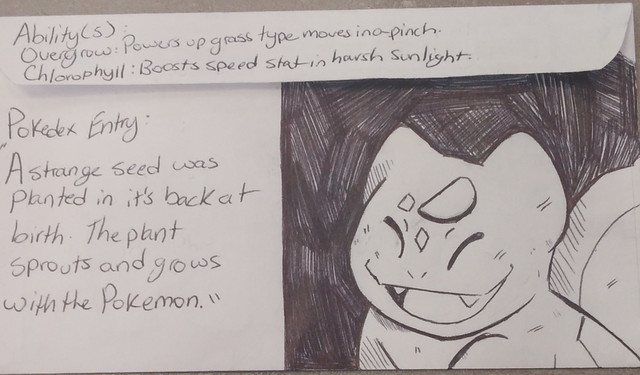 Ability(s):
Overgrow: Powers up grass type moves in a pinch.
Chlorophyll: Boosts speed stat in harsh sunlight.
Pokedex Entry:
"A strange seed was
planted in it's back at
birth. The plant
sprouts and grows
with the Pokemon."